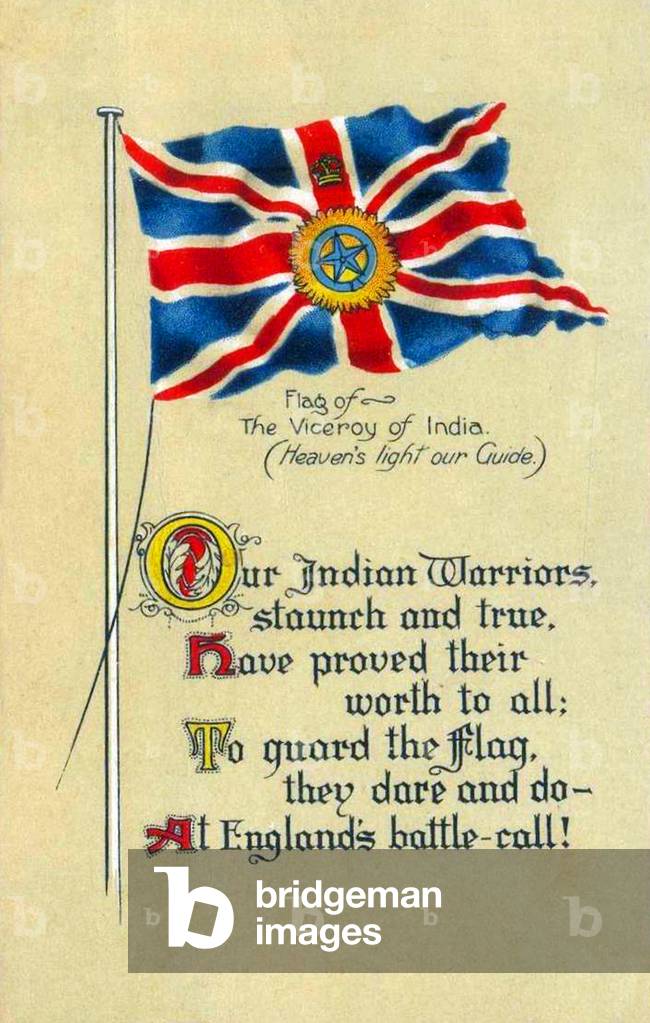 Flag of
The Viceroy of India.
(Heaven's light our Guide.)
Our Indian Warriors,
staunch and true,
Have proved their
worth to all;
To guard the Flag,
they dare and do–
At England's battle-call!
b bridgeman
images